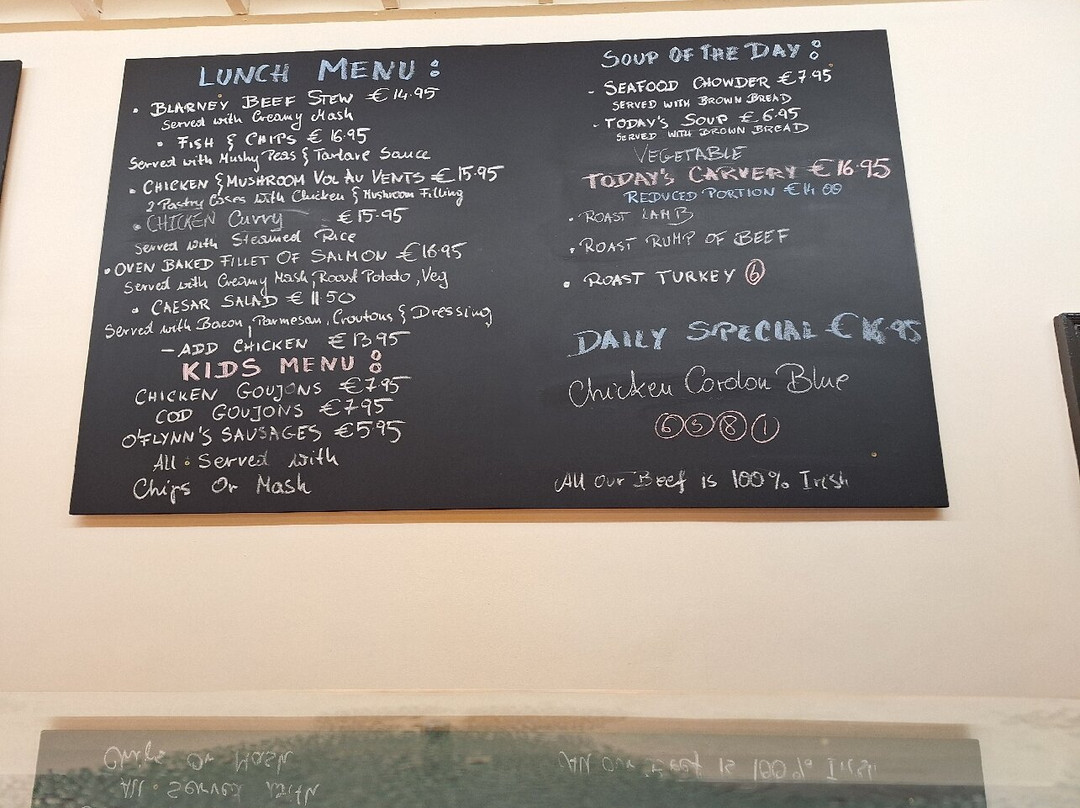 LUNCH MENU :
• BLARNEY BEEF STEW €14.95
Served with Creamy Mash
• FISH & CHIPS €16.95
Served with Mushy Peas & Tartare Sauce
• CHICKEN & MUSHROOM VOL AU VENTS €15.95
2 Pastry Cases with Chicken & Mushroom Filling
• CHICKEN Curry €15.95
Served with Steamed Rice
• OVEN BAKED FILLET OF SALMON €16.95
Served with Creamy Mash, Roast Potato, Veg
• CAESAR SALAD €11.50
Served with Bacon, Parmesan, Croutons & Dressing
- ADD CHICKEN €13.95
KIDS MENU :
CHICKEN GOUJONS €7.95
COD GOUJONS €7.95
O'FLYNN'S SAUSAGES €5.95
All • Served with
Chips Or Mash
SOUP OF THE DAY :
- SEAFOOD CHOWDER €7.95
SERVED WITH BROWN BREAD
- TODAY'S SOUP €6.95
SERVED WITH BROWN BREAD
VEGETABLE
TODAY'S CARVERY €16.95
REDUCED PORTION €14.00
• ROAST LAMB
• ROAST RUMP OF BEEF
• ROAST TURKEY 6
DAILY SPECIAL €16.95
Chicken Cordon Blue
6 5 8 1
All Our Beef is 100% Irish
Chips Or Mash
All • Served with
All Our Beef is 100% Irish